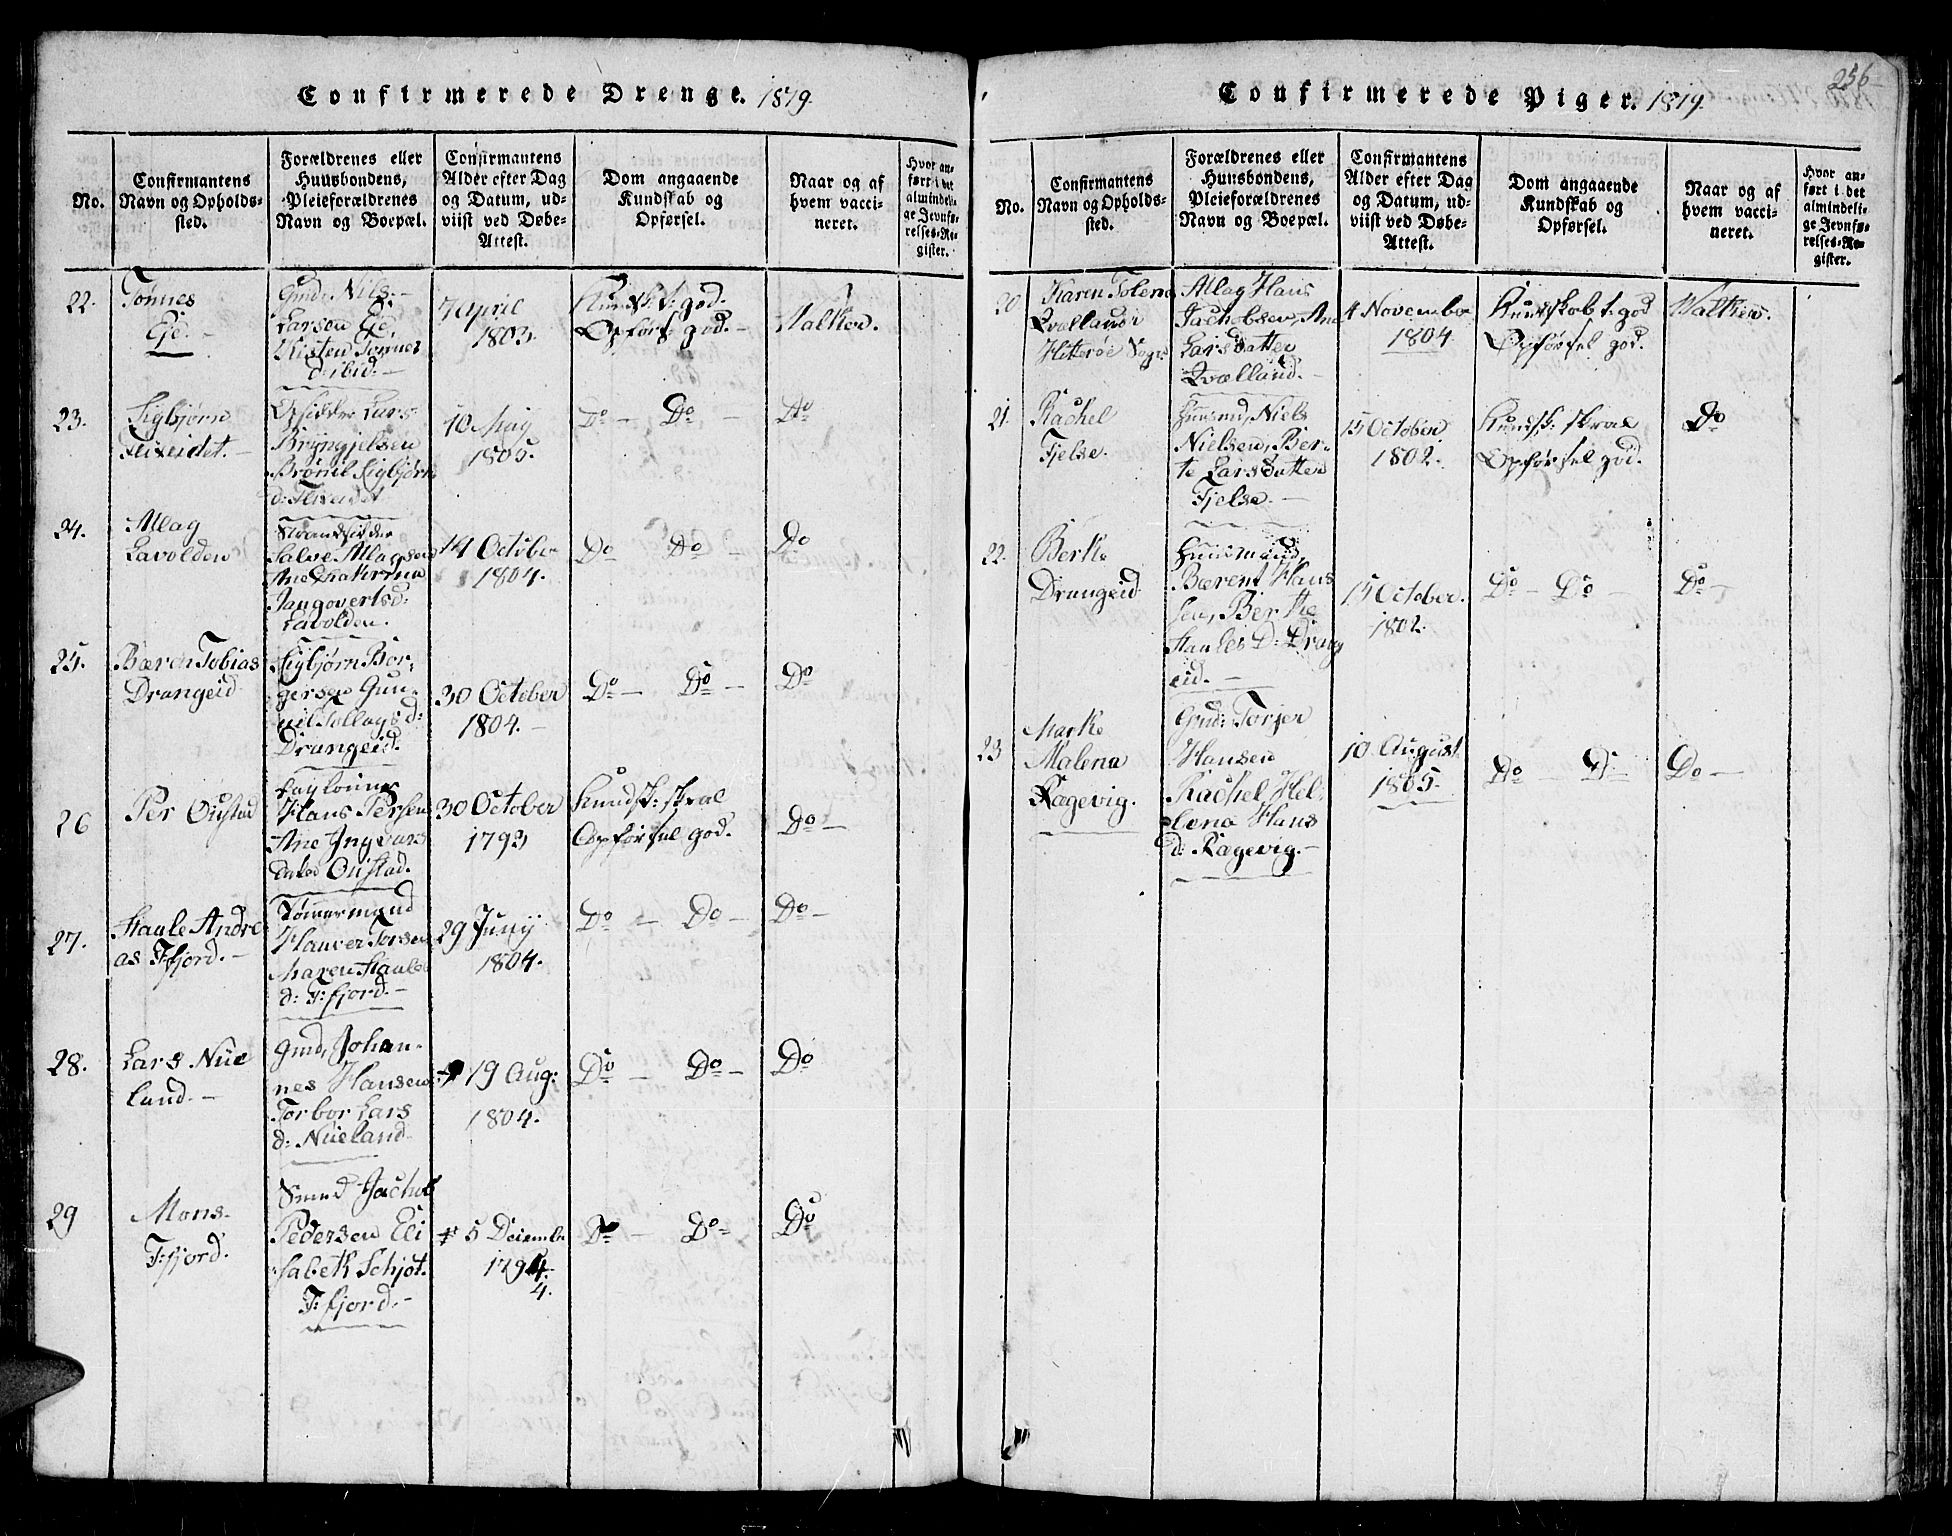 Confirmerede Drenge. 1819.
No.
Confirmantens
Navn og Opholds-
sted.
Forældrenes eller
Huusbondens,
Pleieforældrenes
Navn og Boepæl.
Confirmantens
Alder efter Dag
og Datum, ud-
viist ved Døbe-
Attest.
Dom angaaende
Kundskab og
Opførsel.
Naar og af
hvem vacci-
neret.
Hvor an-
ført i det
almindeli-
ge Jevnfø-
relses-Re-
gister.
22.
Tønnes
Eje.
Gmd: Nils
Larsen Eje,
Kisten Tønnes
d: ibid.
7 April
1803.
Kundsk: t: god.
Opførs: god.
Walken.
23.
Sigbjørn
Flixeidet.
Opsidder Lars
Bryngjelsen
Brønil Sigbjørn
d: Flixeidet
10 May
1805.
Do Do
Do
24.
Allag
Lavolden
Strandsidder
Salve Allagsen
Ane Chatrina
Jangovertsd:
Lavolden.
14 October
1804.
Do Do
Do
25.
Bæren Tobias
Drangeid
Sigbjørn Bor-
gersen Gun-
nil Tollags d:
Drangeid.
30 October
1804.
Do Do
Do
26
Per Oustad
Hans Persen
Ane Ingvars
dater Oustad.
30 October
1793
Kundsk: skral
Opførsel god.
Do
27.
Staale Andre
as F:fjord.
Tømmermand
Haaver Torsen
Maren Staales
d: F:fjord.
29 Juny
1804.
Do Do
Do
28.
Lars Nüe
land.
Gmd, Johan-
nes Hansen
Torbor Lars
d: Nüeland
19 Aug:
1804.
Do Do
Do
29
Mons
F:fjord.
Smed Jachob
Pedersen Eli
sabeth Schjøt.
F:fjord.
5 December
1794
4.
Do Do
Do
256
Confirmerede Piger. 1819.
No.
Confirmantens
Navn og Opholds-
sted.
Forældrenes eller
Huusbondens,
Pleieforældrenes
Navn og Boepæl.
Confirmantens
Alder efter Dag
og Datum, ud-
viist ved Døbe-
Attest.
Dom angaaende
Kundskab og
Opførsel.
Naar og af
hvem vacci-
neret.
Hvor an-
ført i det
almindeli-
ge Jevnfø-
relses-Re-
gister.
20
Karen Tolena
Qvælland
Hitterøe Sogn
Allag Hans
Jachobsen, Ane
Larsdatter
Qvælland.
4 November
1804
Kundskab t: god
Opførsel god.
Walken.
21.
Rachel
Fjelse.
Huusmd, Niels
Nielsen, Ber-
te Larsdatter
Fjelse.
15 October
1802.
Kundsk: skral
Opførsel god.
Do
22.
Berte
Drangeid
Huusmand,
Bærent Hans
sen, Berthe
Staales D: Drang
eid.
15 October.
1802.
Do Do
Do
23
Marte
Malena
Ragevig.
Gmd: Torjer
Hansen
Rachel Hel-
lena Hans
d: Ragevig.
10 August
1805.
Do Do
Do